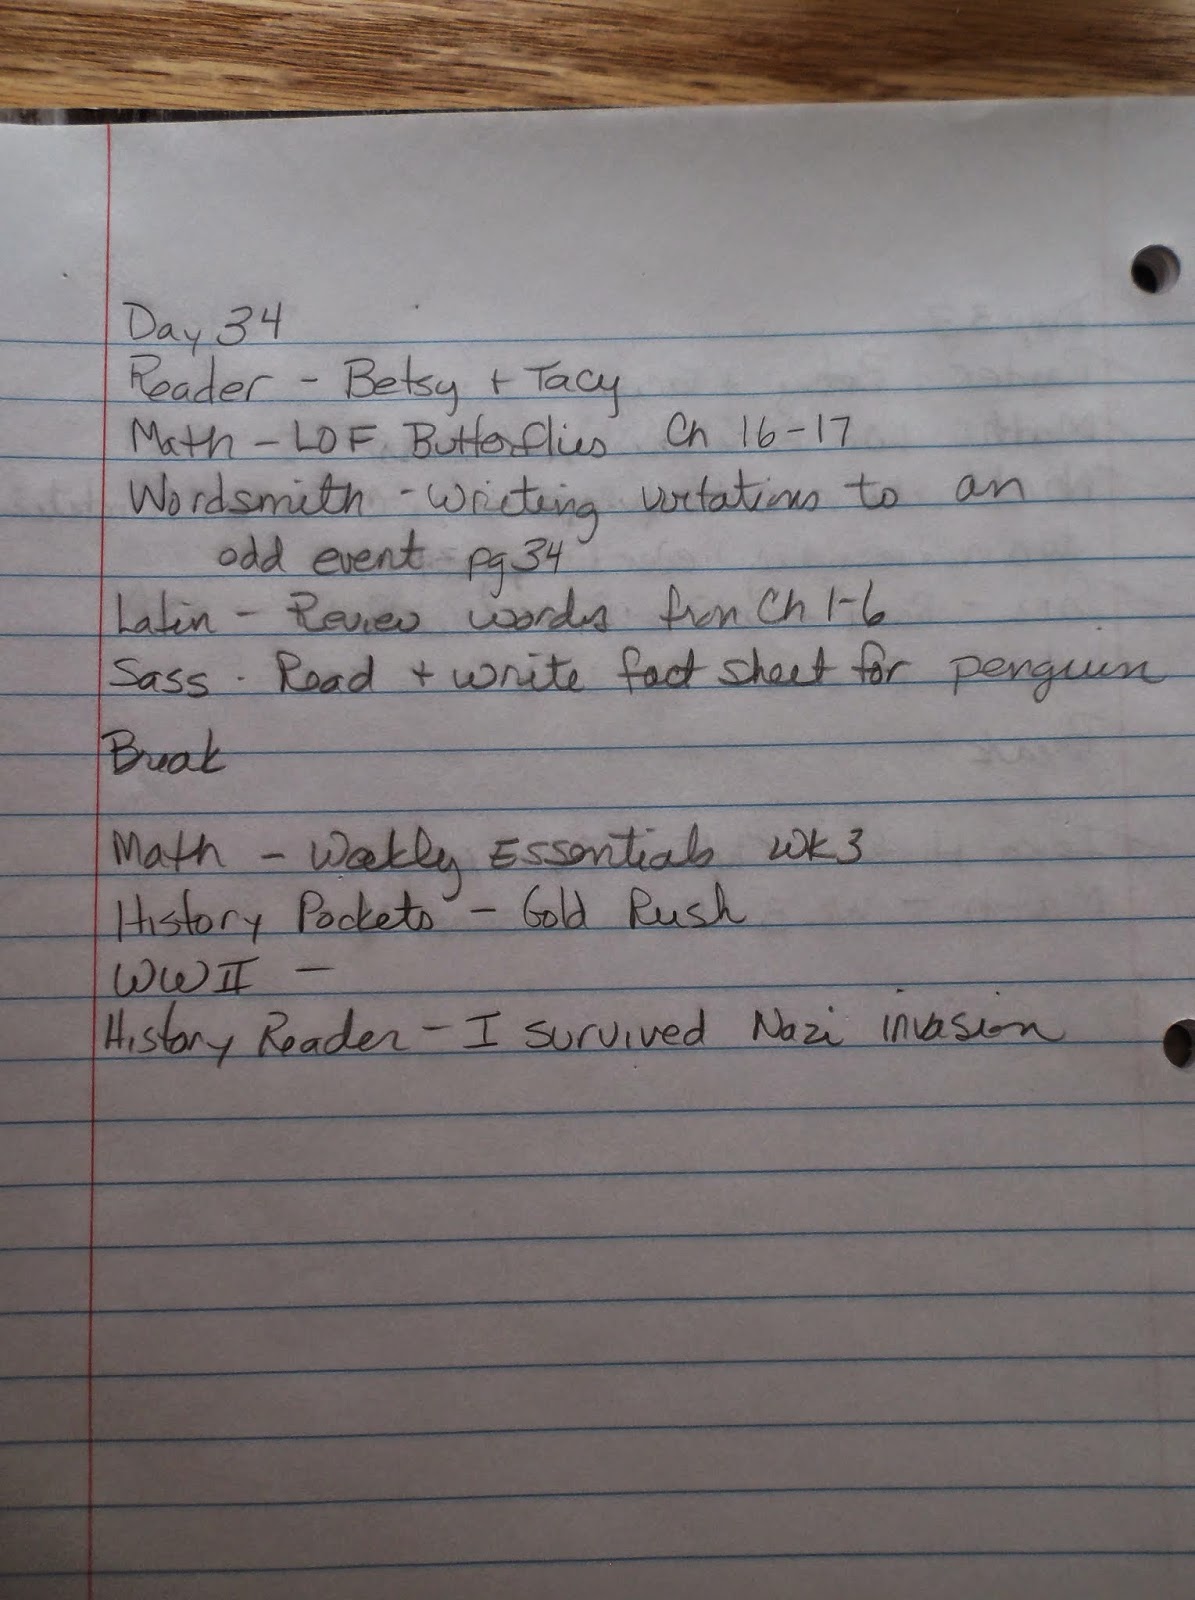 Day 34
Reader - Betsy + Tacy
Math - LOF Butterflies Ch 16-17
Wordsmith - Writing to an
odd event pg 34
Latin - Review words from Ch 1-6
Sass - Read + write fact sheet for penguin
Break
Math - Weekly Essentials WK 3
History Pockets - Gold Rush
WWII -
History Reader - I survived Nazi invasion